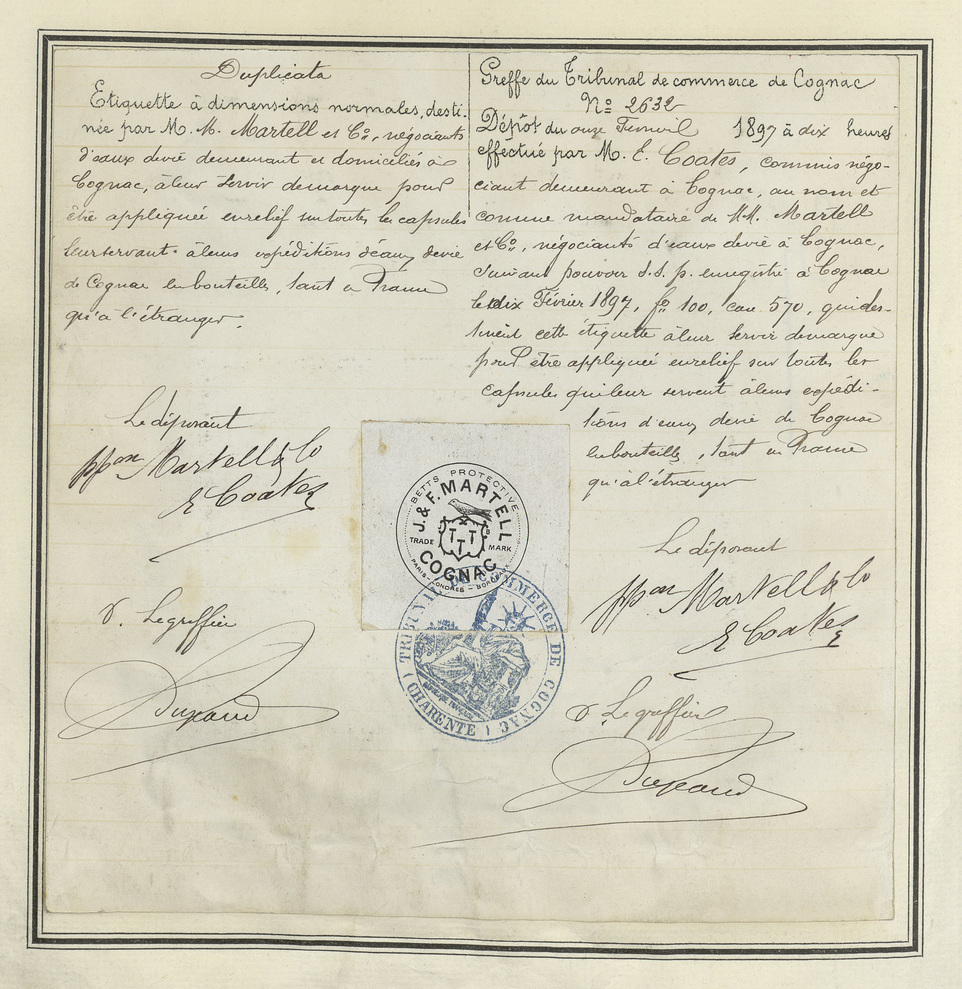 Duplicata
Etiquette à dimensions normales, desti-
née par M. M. Martell et Cº, négociants
d'eaux devie demeurant et domiciliés à
Cognac, àleur servir demarque pour
être appliquée enrelief surtoutes les capsules
leurservant àleurs expéditions d'eaux devie
de Cognac enbouteilles, tant en France
qu'à l'étranger.
Le déposant
ppon Martell & Co
E Coates
Le greffier
Greffe du Tribunal de commerce de Cognac
Nº 2632
Dépôt du onze 1897 à dix heures
effectué par M. E. Coates, commis négo-
ciant demeurant à Cognac, au nom et
comme mandataire de MM. Martell
et Cº, négociants d'eaux devie à Cognac,
suivant pouvoir s.s.p. enregistré à Cognac
le dix Février 1897, fº 100, case 570, quides-
tinent cette étiquette àleur servir demarque
pour être appliquée enrelief sur toutes les
capsules quileur servent àleurs expédi-
tions d'eaux devie de Cognac
enbouteilles, tant en France
qu'àl'étranger
Le déposant
ppon Martell & Co
E Coates
Le greffier
BETTS PROTECTIVE
J. & F. MARTELL
TRADE MARK
TTT
COGNAC
PARIS - LONDRES - BORDEAUX
TRIBUNAL DE COMMERCE DE COGNAC
(CHARENTE)